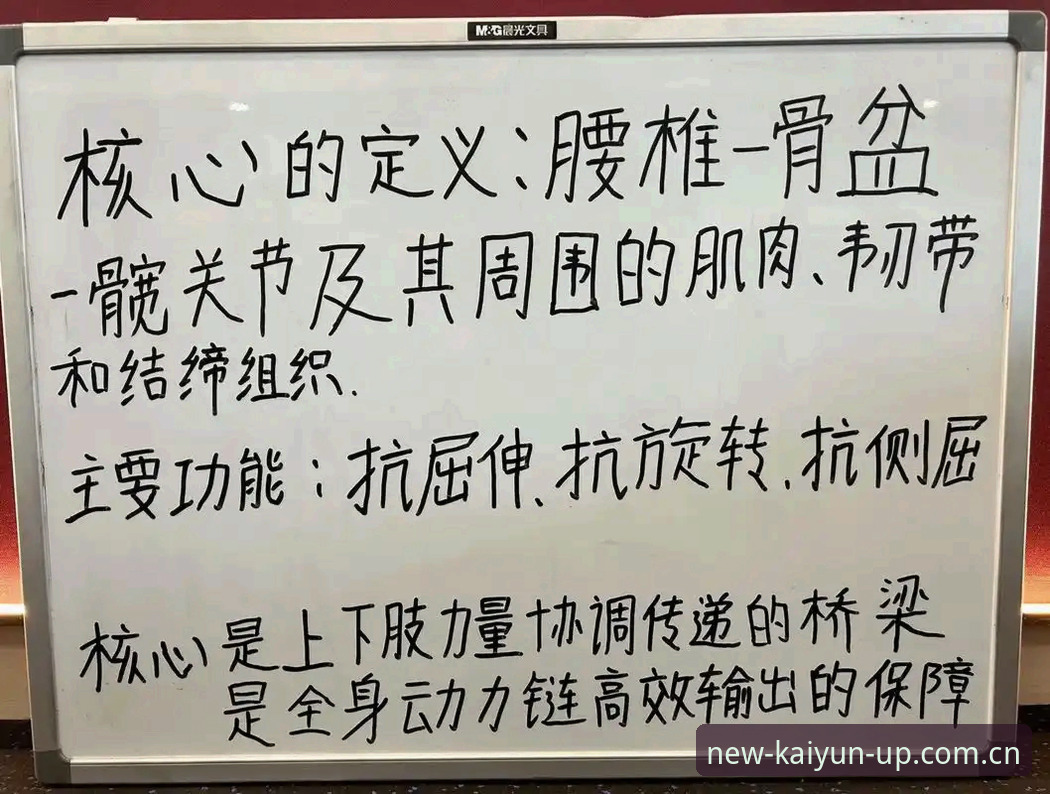 M&G晨光文具
核心的定义:腰椎-骨盆
-髋关节及其周围的肌肉、韧带
和结缔组织.
主要功能:抗屈伸、抗旋转、抗侧屈
核心是上下肢力量协调传递的桥梁
是全身动力链高效输出的保障
new-kaiyun-up.com.cn